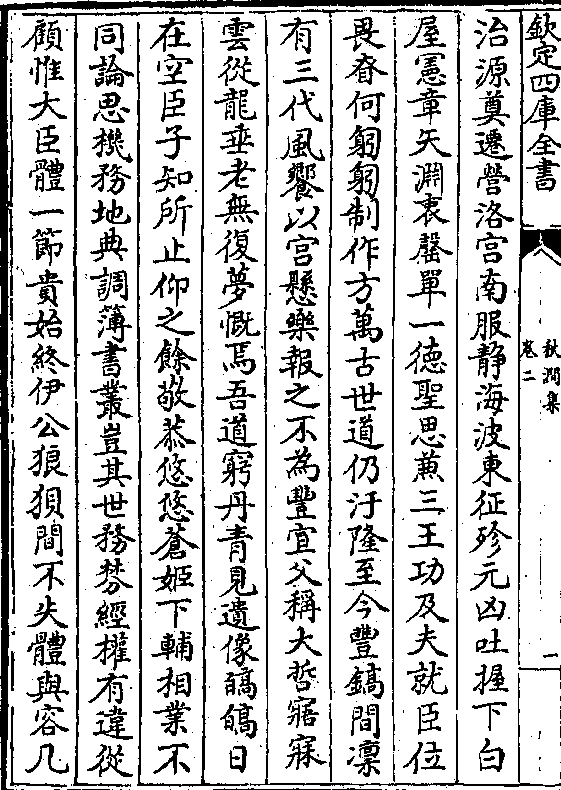 欽定四庫全書
秋澗集
卷二
一
治源奠遷營洛宫南服静海波東征殄元凶吐握下白
屋憲章矢淵衷罄單一徳聖思蒹三王功及夫就臣位
畏脊何躬躬制作方萬古世道仍汙隆至今豐鎬間凛
有三代風饗以宫懸樂報之不為豐宣父稱大哲寤寐
雲從龍垂老無復夢慨焉吾道窮丹青見遺像皜皜日
在空臣子知所止仰之餘敬恭悠悠蒼姬下輔相業不
同論思機務地典調簿書叢豈其世務棼經權有違從
顧惟大臣體一節貴始終伊公狼狽間不失體與容几